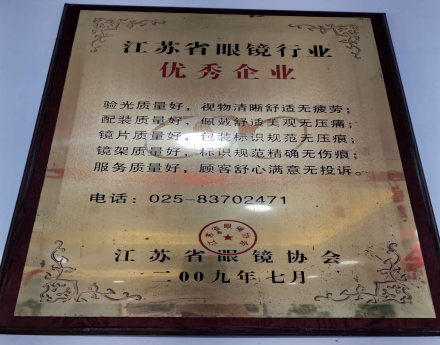 江苏省眼镜行业
优秀企业
验光质量好，视物清晰舒适无疲劳；
配装质量好，佩戴舒适美观无压痛；
镜片质量好，包装标识规范无压痕；
镜架质量好，标识规范精确无伤痕；
服务质量好，顾客舒心满意无投诉。
电话：025-83702471
江苏省眼镜协会
江苏省眼镜协会
二00九年七月